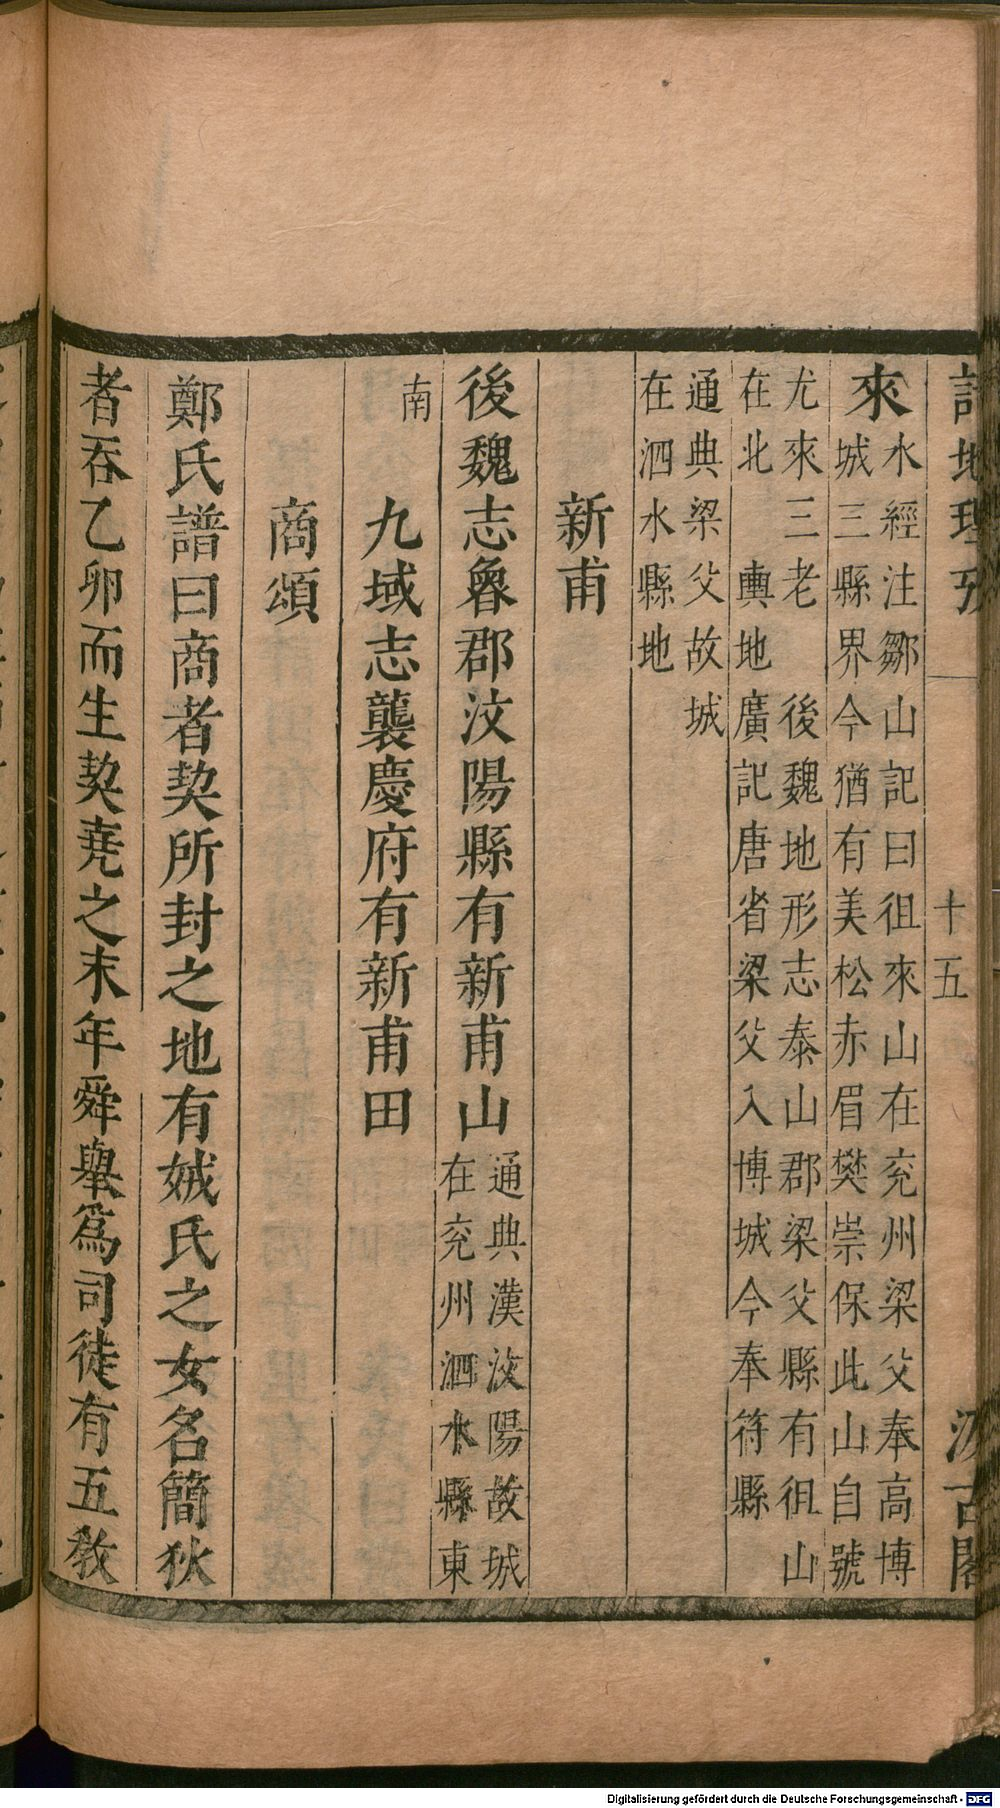 詩地理攷
十五
汲古閣
來
水經注鄒山記曰徂來山在兖州梁父奉高博
城三縣界今猶有美松赤眉樊崇保此山自號
尤來三老　後魏地形志泰山郡梁父縣有徂山
在北　輿地廣記唐省梁父入博城今奉符縣
通典梁父故城
在泗水縣地
新甫
後魏志魯郡汶陽縣有新甫山
通典漢汶陽故城
在兖州泗水縣東
南
九域志襲慶府有新甫田
商頌
鄭氏譜曰商者契所封之地有娀氏之女名簡狄
者吞乙卵而生契堯之末年舜舉爲司徒有五教
Digitalisierung gefördert durch die Deutsche Forschungsgemeinschaft - DFG